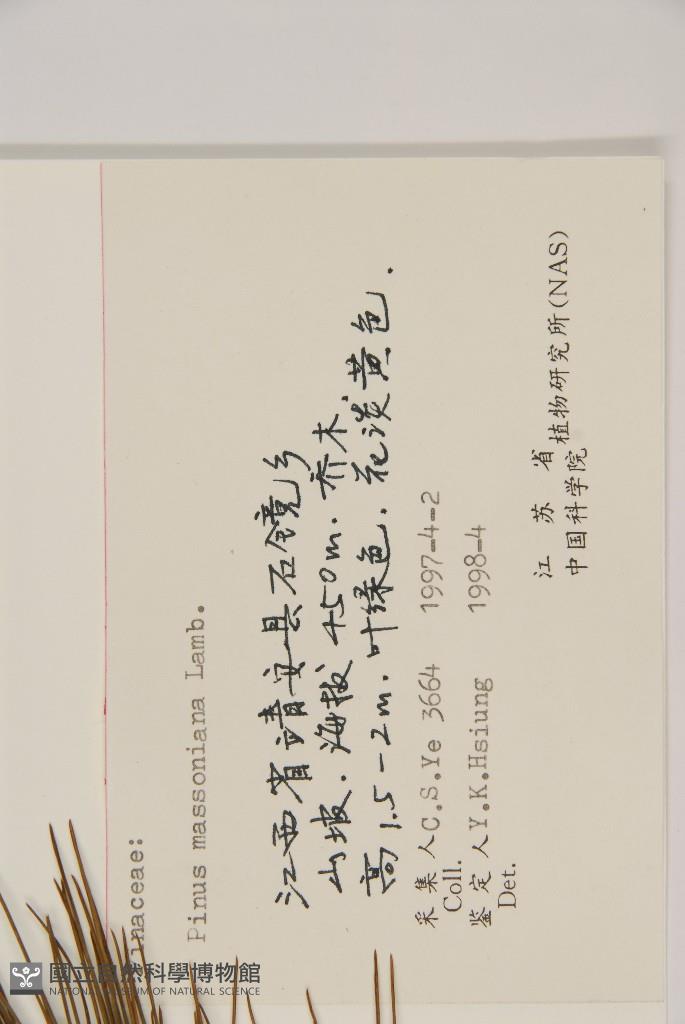 inaceae:
Pinus massoniana Lamb.
江西省靖安县石镜乡
山坡. 海拔 450m. 乔木
高1.5-2m. 叶绿色. 花淡黄色.
采集人C.S.Ye 3664 1997-4-2
Coll.
鉴定人Y.K.Hsiung 1998-4
Det.
江苏省
中国科学院植物研究所(NAS)
國立自然科學博物館
NATIONAL MUSEUM OF NATURAL SCIENCE